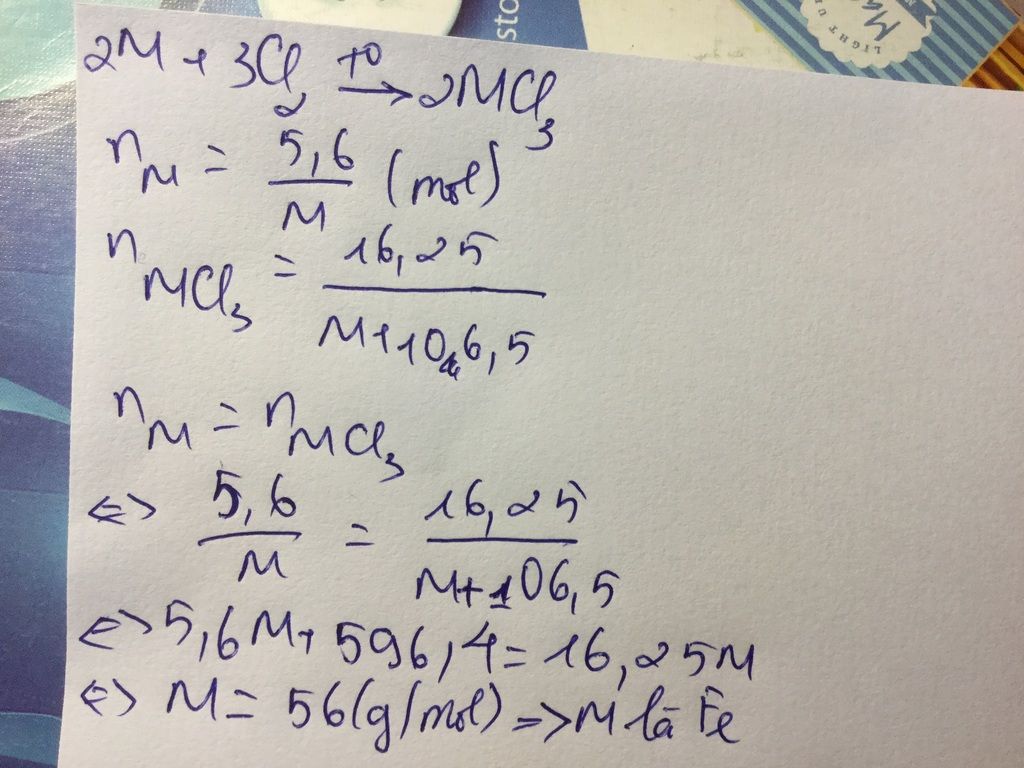 sto
LIGHT
2M + 3Cl₂ —t°→ 2MCl₃
n_M = 5,6/M (mol)
n_MCl₃ = 16,25/(M+106,5)
n_M = n_MCl₃
<=> 5,6/M = 16,25/(M+106,5)
<=> 5,6M + 596,4 = 16,25M
<=> M = 56(g/mol) => M là Fe